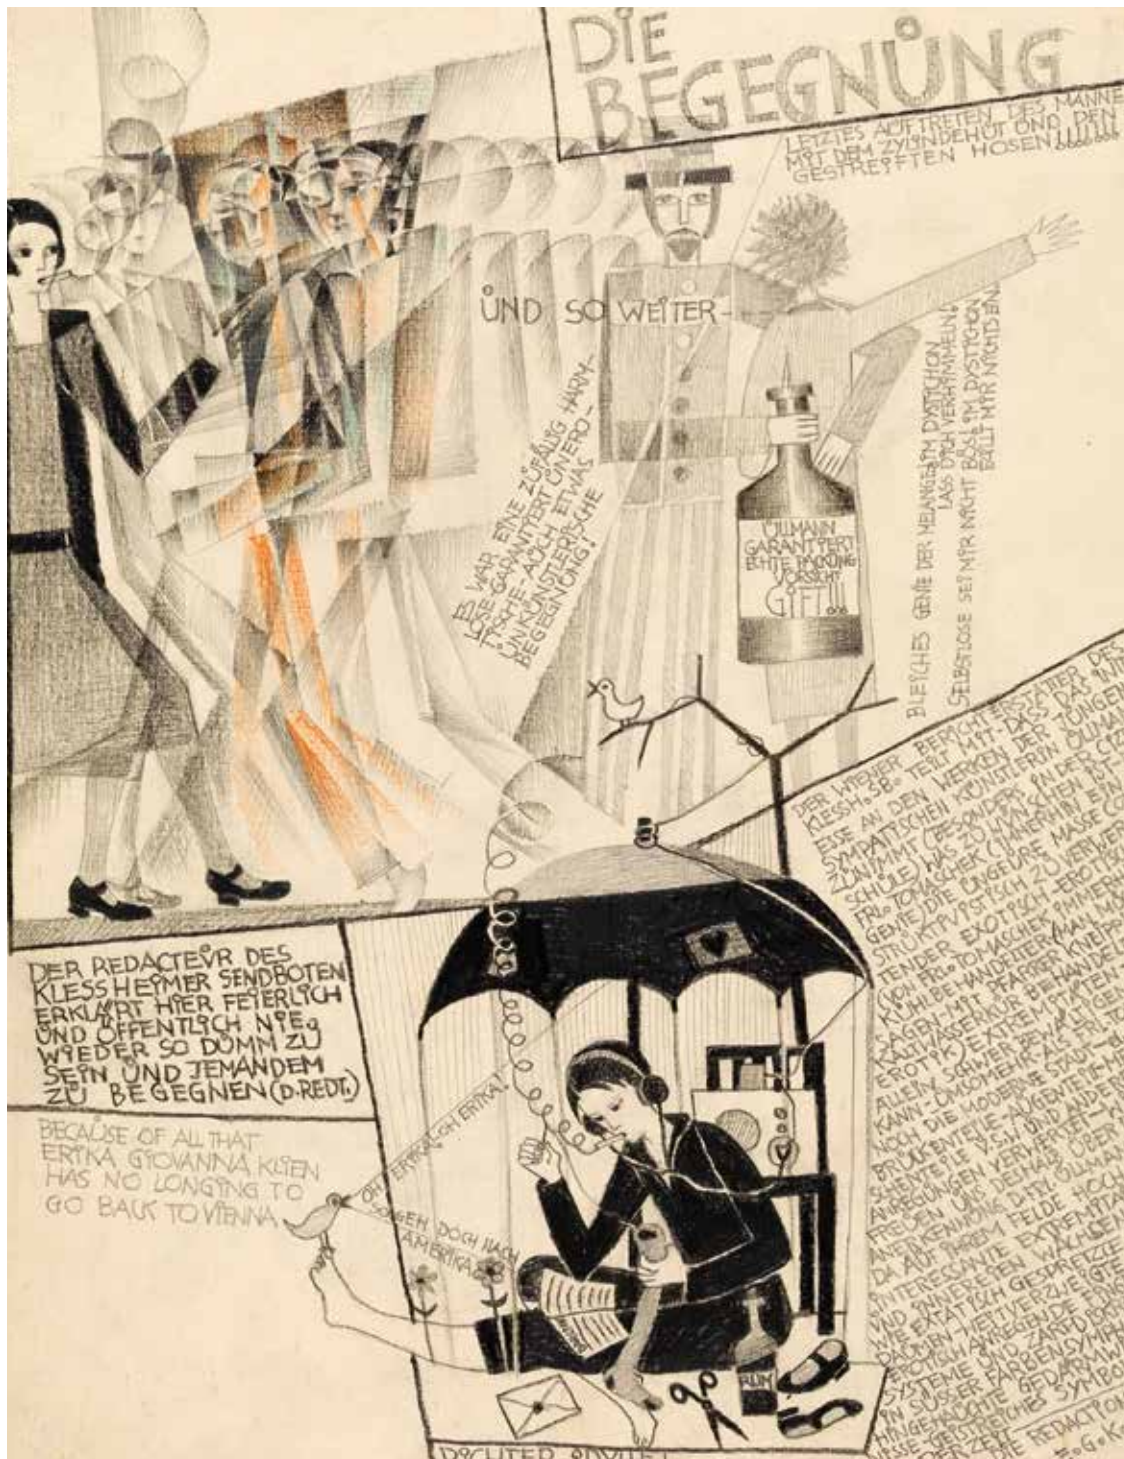 DIE
BEGEGNUNG
LETZTES AUFTRETEN DES MANNE
MIT DEM ZYLINDEHUT UND DEN
GESTREIFTEN HOSEN!
UND SO WEITER
ES WAR EINE ZUFÄLLIG HARM-
LOSE GARANTIERT UNERO-
TISCHE-AUCH ETWAS
UNKÜNSTLERISCHE
BEGEGNUNG!
ÜLLMANN
GARANTIERT
ECHTE PACKUNG
VORSICHT
GIFT!!!
BLEICHES GENIE DER MELANGE IM DYSTICHON
LASS DICH VERHIMMELN!
SELBSTLOSE SEI MIR NICHT BÖSE IM DYSTICHON
FÄLLT MIR NICHTS EIN
DER WIENER BERICHTERSTATTER DES
KLESSH.SB. TEILT MIT-DASS DAS INT
ESSE AN DEN WERKEN DER JUNGEN
SYMPATISCHEN KÜNSTLERIN ULLMANN
ZUNIMMT (BESONDERS IN DER CIZE
SCHULE) WAS ZU WÜNSCHEN IST-
FRL.TOMASCHEK (IMMERHIN EIN
GENIE) DIE UNGEURE MASSE CO
STRUKTIVISTISCH ZU VERWER
TENDER EXOTISCH-EROTISCH
(VON FRL.TOMASCHEK IMMERH
KÜHL BEHANDELTER (MAN MÖ
SAGEN MIT PFARRER KNEIPP
KALTWASSERKUR BEHANDEL
EROTIK) EXTREMITÄTEN-
ALLEIN SCHWER BEWÄLTIGEN
KANN-UMSOMEHR ALS FRL TO
NOCH DIE MODERNE STADT-
BRÜCKENTEILE-AUGENTEILE-ME
SCHENTEILE U.S.W. UND ANDERE
ANREGUNGEN VERWERTET-W
FREUEN UNS DESHALB ÜBER
ANERKENNUNG D.FRL ULLMAN
DA AUF IHREM FELDE HOCH
INTERESSANTE EXTREMITÄ
UND INNEREIEN WACHSEN
WIE EXTATISCH GESPREIZTE
DAUMEN-WEITVERZWEIGTE
EROTISCH ANREGENDE
SYSTEME UND ZART
IN SÜSSER FARBENSYMPH
HINGEHAUCHTE GEDARMW
GEISTREICHES SYMBOL
DER ZEIT
DIE REDACTION
E.G.K.
DER REDACTEUR DES
KLESSHEIMER SENDBOTEN
ERKLÄRT HIER FEIERLICH
UND ÖFFENTLICH NIE
WIEDER SO DUMM ZU
SEIN UND JEMANDEM
ZU BEGEGNEN (D.REDT.)
BECAUSE OF ALL THAT
ERIKA GIOVANNA KLIEN
HAS NO LONGING TO
GO BACK TO VIENNA
OH ERIKA, OH ERIKA!
SO GEH DOCH NACH
AMERIKA
RUM
DICHTER IDYLLE!